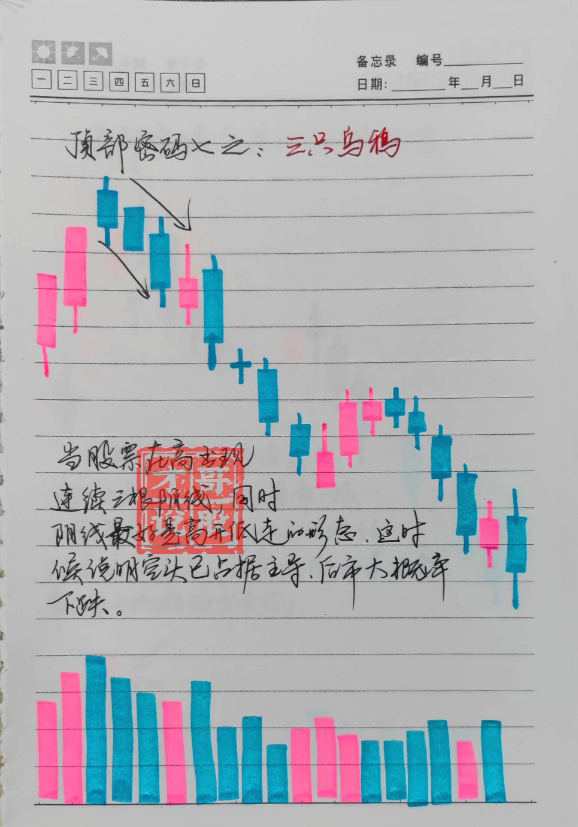 备忘录 编号
一 二 三 四 五 六 日
日期: 年 月 日
顶部密码七之：三只乌鸦
当股票在高出现
连续三根阴线，同时
阴线最好是高开低走的形态，这时
候说明空头已占据主导，后市大概率
下跌。